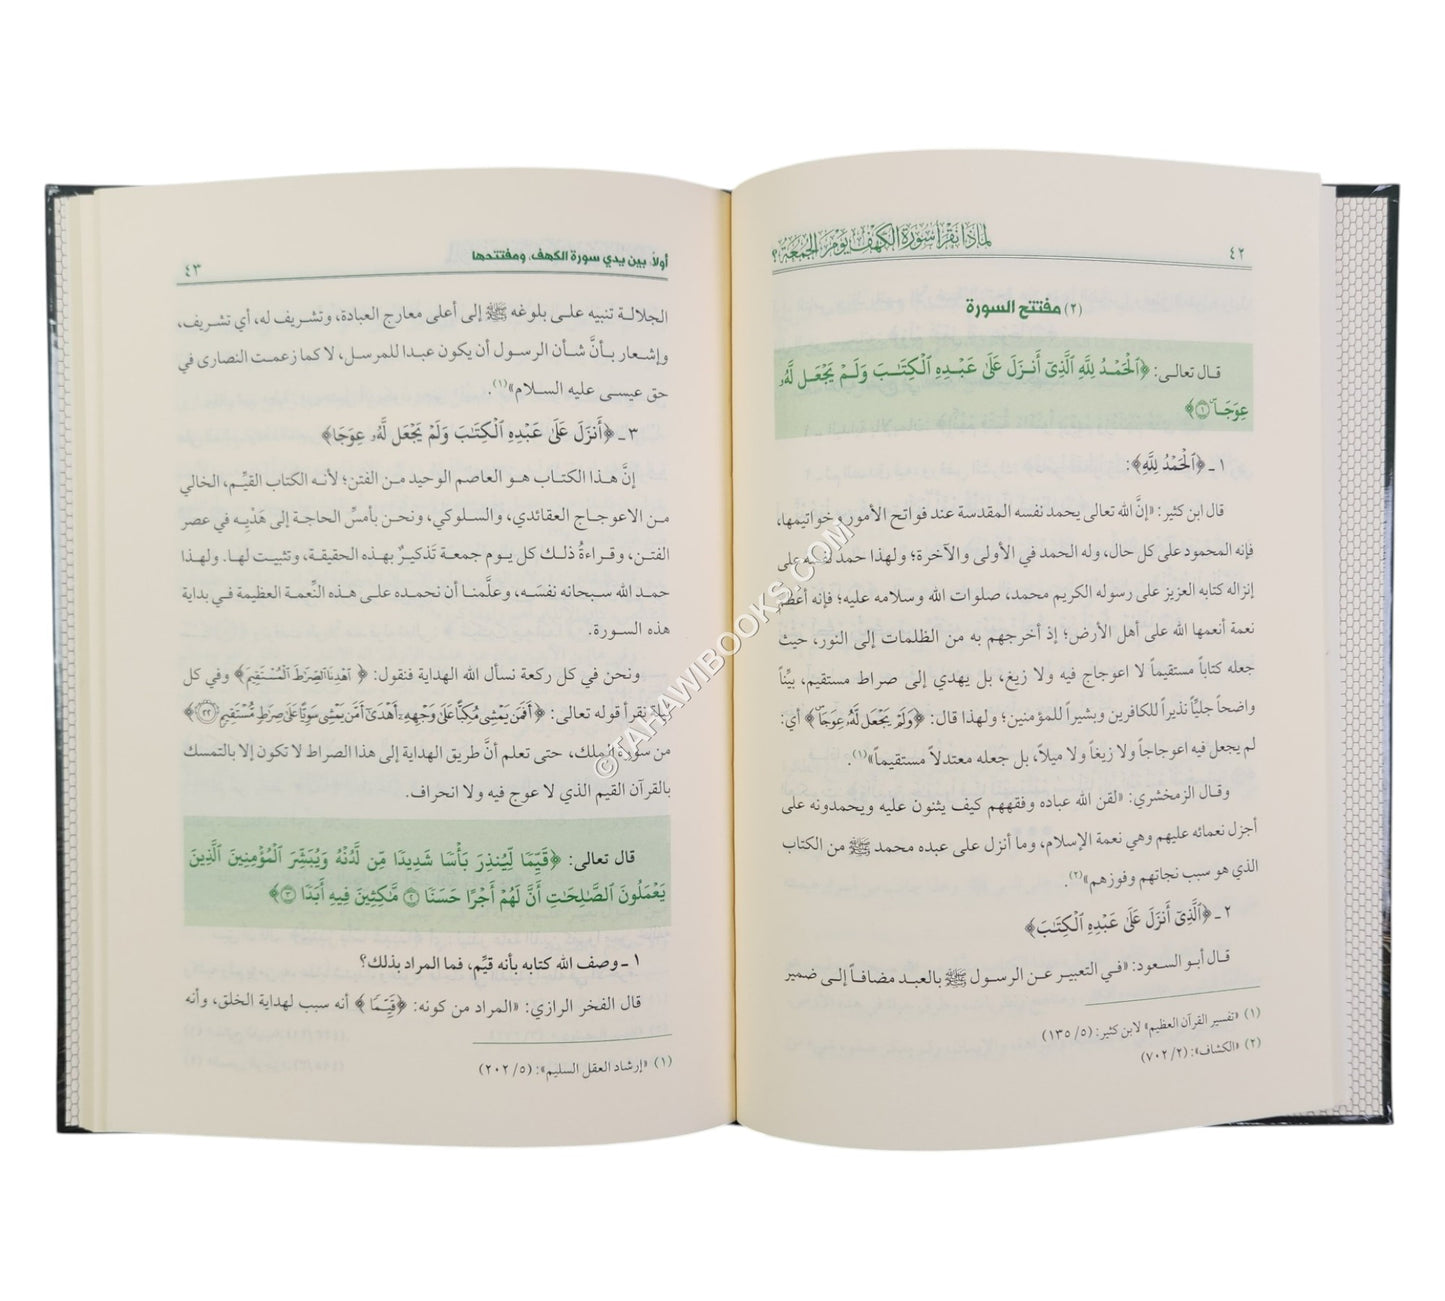 ٤٢
لماذا نقرأ سورة الكهف يوم الجمعة؟
(٢) مفتتح السورة
قال تعالى: ﴿ٱلْحَمْدُ لِلَّهِ ٱلَّذِىٓ أَنزَلَ عَلَىٰ عَبْدِهِ ٱلْكِتَٰبَ وَلَمْ يَجْعَل لَّهُۥ
عِوَجَاۜ ۝١﴾
١ ـ ﴿ٱلْحَمْدُ لِلَّهِ﴾:
قال ابن كثير: «إنَّ الله تعالى يحمد نفسه المقدسة عند فواتح الأمور وخواتيمها،
فإنه المحمود على كل حال، وله الحمد في الأولى والآخرة؛ ولهذا حمد نفسه على
إنزاله كتابه العزيز على رسوله الكريم محمد، صلوات الله وسلامه عليه؛ فإنه أعظم
نعمة أنعمها الله على أهل الأرض؛ إذ أخرجهم به من الظلمات إلى النور، حيث
جعله كتاباً مستقيماً لا اعوجاج فيه ولا زيغ، بل يهدي إلى صراط مستقيم، بيِّناً
واضحاً جليًّا نذيراً للكافرين وبشيراً للمؤمنين؛ ولهذا قال: ﴿وَلَمْ يَجْعَل لَّهُۥ عِوَجَاۜ﴾ أي:
لم يجعل فيه اعوجاجاً ولا زيغاً ولا ميلاً، بل جعله معتدلاً مستقيماً»(١).
وقال الزمخشري: «لقن الله عباده وفقههم كيف يثنون عليه ويحمدونه على
أجزل نعمائه عليهم وهي نعمة الإسلام، وما أنزل على عبده محمد ﷺ من الكتاب
الذي هو سبب نجاتهم وفوزهم»(٢).
٢ ـ ﴿ٱلَّذِىٓ أَنزَلَ عَلَىٰ عَبْدِهِ ٱلْكِتَٰبَ﴾
قال أبو السعود: «في التعبير عن الرسول ﷺ بالعبد مضافاً إلى ضمير
(١) «تفسير القرآن العظيم» لابن كثير: (٥/ ١٣٥)
(٢) «الكشاف»: (٢/ ٧٠٢)
أولاً: بين يدي سورة الكهف، ومفتتحها
٤٣
الجلالة تنبيه على بلوغه ﷺ إلى أعلى معارج العبادة، وتشريف له، أي تشريف،
وإشعار بأنَّ شأن الرسول أن يكون عبدا للمرسل، لا كما زعمت النصارى في
حق عيسى عليه السلام»(١).
٣ ـ ﴿أَنزَلَ عَلَىٰ عَبْدِهِ ٱلْكِتَٰبَ وَلَمْ يَجْعَل لَّهُۥ عِوَجَا﴾
إنَّ هذا الكتاب هو العاصم الوحيد من الفتن؛ لأنه الكتاب القيِّم، الخالي
من الاعوجاج العقائدي، والسلوكي، ونحن بأمسِّ الحاجة إلى هَدْيِه في عصر
الفتن، وقراءةُ ذلك كل يوم جمعة تَذكيرٌ بهذه الحقيقة، وتثبيت لها. ولهذا
حمد الله سبحانه نفسَه، وعلَّمنا أن نحمده على هذه النِّعمة العظيمة في بداية
هذه السورة.
ونحن في كل ركعة نسأل الله الهداية فنقول: ﴿ٱهْدِنَا ٱلصِّرَٰطَ ٱلْمُسْتَقِيمَ﴾ وفي كل
نقرأ قوله تعالى: ﴿أَفَمَن يَمْشِى مُكِبًّا عَلَىٰ وَجْهِهِۦٓ أَهْدَىٰٓ أَمَّن يَمْشِى سَوِيًّا عَلَىٰ صِرَٰطٍ مُّسْتَقِيمٍ ۝٢٢﴾
من سورة الملك، حتى تعلم أنَّ طريق الهداية إلى هذا الصراط لا تكون إلا بالتمسك
بالقرآن القيم الذي لا عوج فيه ولا انحراف.
قال تعالى: ﴿قَيِّمًا لِّيُنذِرَ بَأْسًا شَدِيدًا مِّن لَّدُنْهُ وَيُبَشِّرَ ٱلْمُؤْمِنِينَ ٱلَّذِينَ
يَعْمَلُونَ ٱلصَّٰلِحَٰتِ أَنَّ لَهُمْ أَجْرًا حَسَنًا ۝٢ مَّٰكِثِينَ فِيهِ أَبَدًا ۝٣﴾
١ ـ وصف الله كتابه بأنه قيِّم، فما المراد بذلك؟
قال الفخر الرازي: «المراد من كونه: ﴿قَيِّمًا﴾ أنه سبب لهداية الخلق، وأنه
(١) «إرشاد العقل السليم»: (٥/ ٢٠٢)
©TAHAWIBOOKS.COM